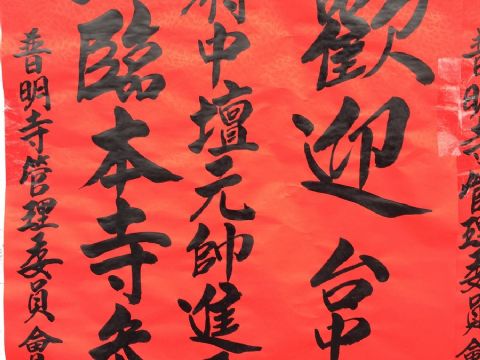 普明寺管理委員會
歡迎台中
府中壇元帥進
臨本寺參
普明寺管理委員會